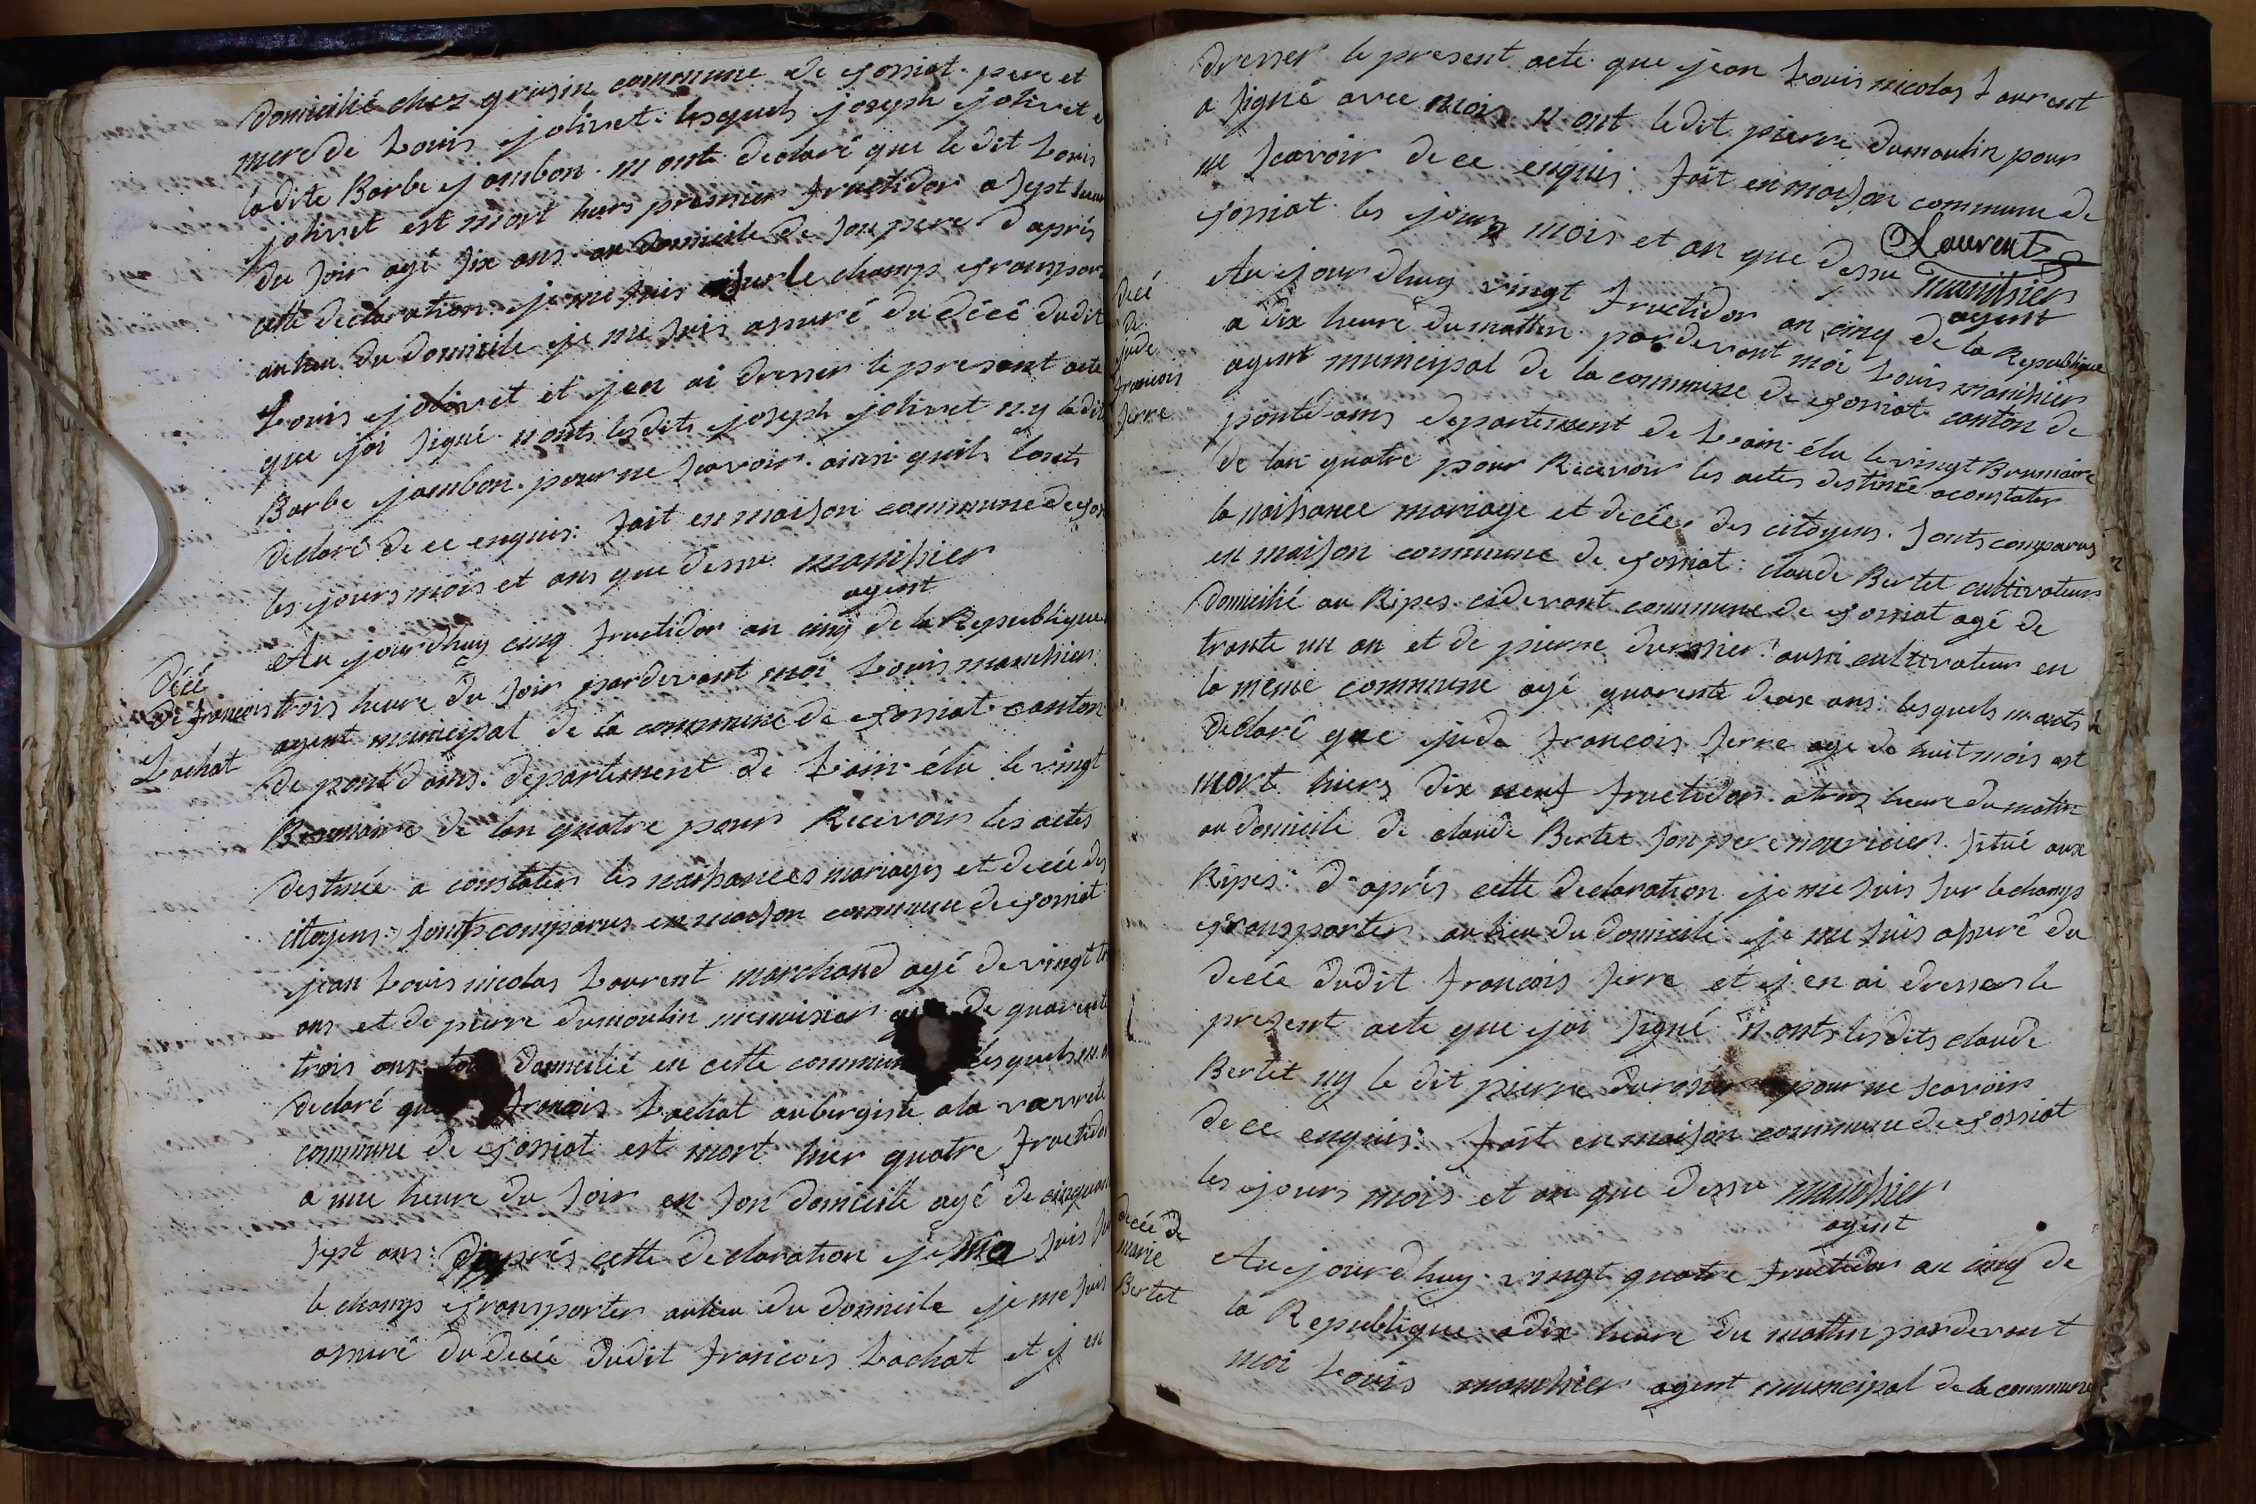 Domicilié chez grusin commune de jossiat. pere et
mere de Louis jolivet. lesquels joseph jolivet e
ladite Barbe jambon. m onts declaré que le dit Louis
jolivet est mort hiers premier fructidor a sept heure
du soir agé six ans au domicile de son pere d'aprés
cette declaration je me suis sur le champs transpor
au lieu du domicile je me suis assuré du décé dudit
Louis jolivet et jen ai dresser le present acte
que jai signé. nonts lesdits joseph jolivet ny ladite
Barbe jambon. pour ne scavoir. ainsi quils lonts
declaré de ce enquis: fait en maison commune de jos
les jours mois et ans que dessu manihier
agent
Décé
de francois
Lachat
Au jourdhuy cinq fructidor an cinq de la Republique
trois heure du soir pardevant moi Louis manihier
agent municipal de la commune de jossiat canton
de pont d'ains. departement de Lain élu le vingt
Brumaire de lan quatre pour Recevoir les actes
destinée a constater les naihances mariages et decée des
citoyens: sonts comparus en maison commune de jossiat
jean Louis nicolas Laurent marchand agé de vingt
ans et de pierre dumoulin menuisier de quarente
trois ans: domicilié en cette commun lesquels m
declaré que francois Lachat aubergiste a la
commune de jossiat est mort hier quatre fructidor
a une heure du soir en son domicile agé de cinquan
sept ans: D'aprés cette declaration je me suis su
le champs transporter au lieu du domicile je me suis
assuré du decée dudit francois Lachat et j en
dresser le present acte que jean Louis nicolas Laurent
a signé avec moi n ont ledit pierre dumoulin pour
ne scavoir de ce enquis: fait en maison commune de
jossiat les jours mois et an que dessu Laurent
manihier
agent
Decé
de
jude
francois
ferre
Au jourdhuy vingt fructidor an cinq de la Republique
a dix heure du mattin pardevant moi Louis manihier
agent municipal de la commune de jossiat canton de
pontd-ains departement de Lain élu le vingt Brumaire
de lan quatre pour Recevoir les actes destinée a constater
la naihance mariage et decée des citoyens. sonts comparus
en maison commune de jossiat: claude Bertet cultivateur
domicilié au Ripes cidevant commune de jossiat agé de
trante un an et de pierre durosier aussi cultivateur en
la meme commune agé quarente deux ans: lesquels m onts
declaré que jude francois ferre age de huit mois est
mort hiers dix neuf fructidor. a trois heure du matin
au domicile de claude Bertet son pere nouricier. situé aux
Ripes: d'aprés cette declaration je me suis sur le champs
transporter au lieu du domicile je me suis assuré du
decée dudit francois ferre et j en ai dresser le
present acte que jai signé n onts lesdits claude
Bertet ny le dit pierre durosier pour ne scavoir
de ce enquis: fait en maison commune de jossiat
les jours mois et an que dessu manihier
agent
decée de
marie
Bertet
Au jourdhuy vingt quatre fructidor an cinq de
la Republique a dix heure du mattin pardevant
moi Louis manihier agent municipal de la commune